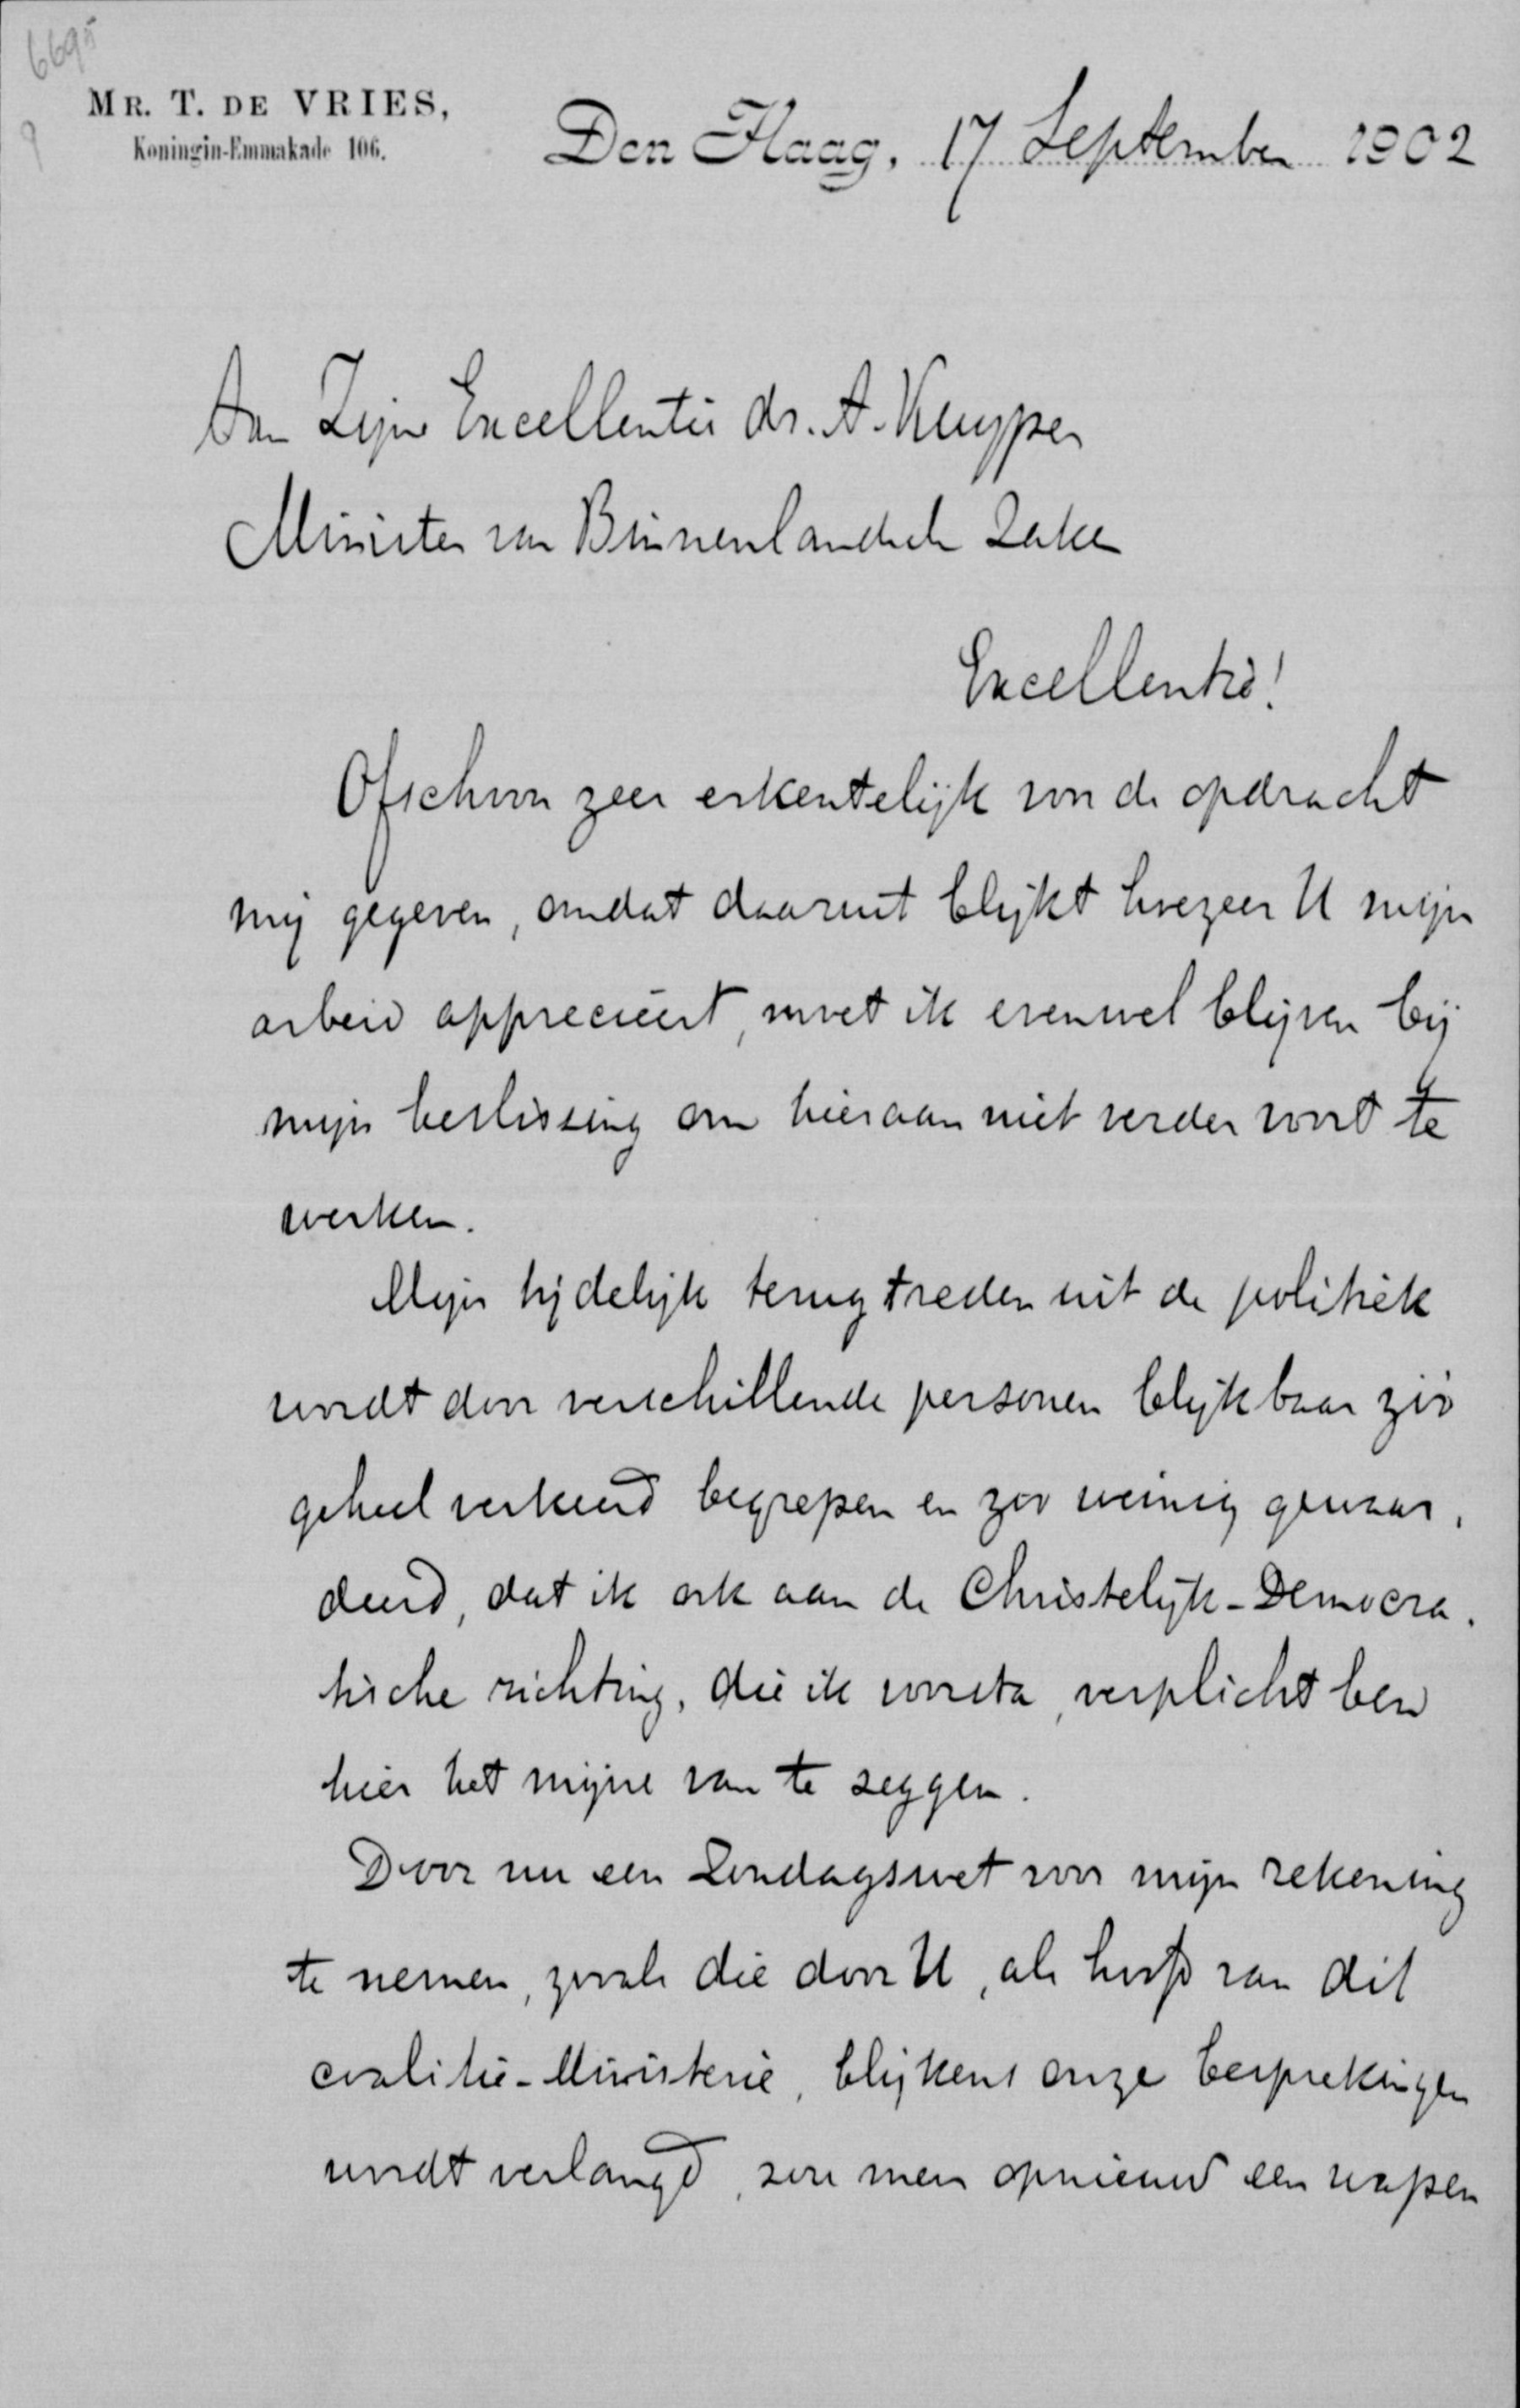 6695
9
MR. T. DE VRIES,
Koningin-Emmakade 106.
Den Haag, 17 September 1902
Aan Zijne Excellentie dr. A. Kuyper
Minister van Binnenlandsche Zaken
Excellentie!
Ofschoon zeer erkentelijk voor de opdracht
mij gegeven, omdat daaruit blijkt hoezeer U mijn
arbeid apprecieert, moet ik evenwel blijven bij
mijn beslissing om hieraan niet verder voort te
werken.
Mijn tijdelijk terugtreden uit de politiek
wordt door verschillende personen blijkbaar zóó
geheel verkeerd begrepen en zoo weinig gewaar-
deerd, dat ik ook aan de Christelijk-Democra-
tische richting, die ik voorsta, verplicht ben
hier het mijne van te zeggen.
Door nu een Zondagswet voor mijn rekening
te nemen, zooals die door U, als hoofd van dit
coalitie-Ministerie, blijkens onze besprekingen
wordt verlangd, zou men opnieuw een wapen